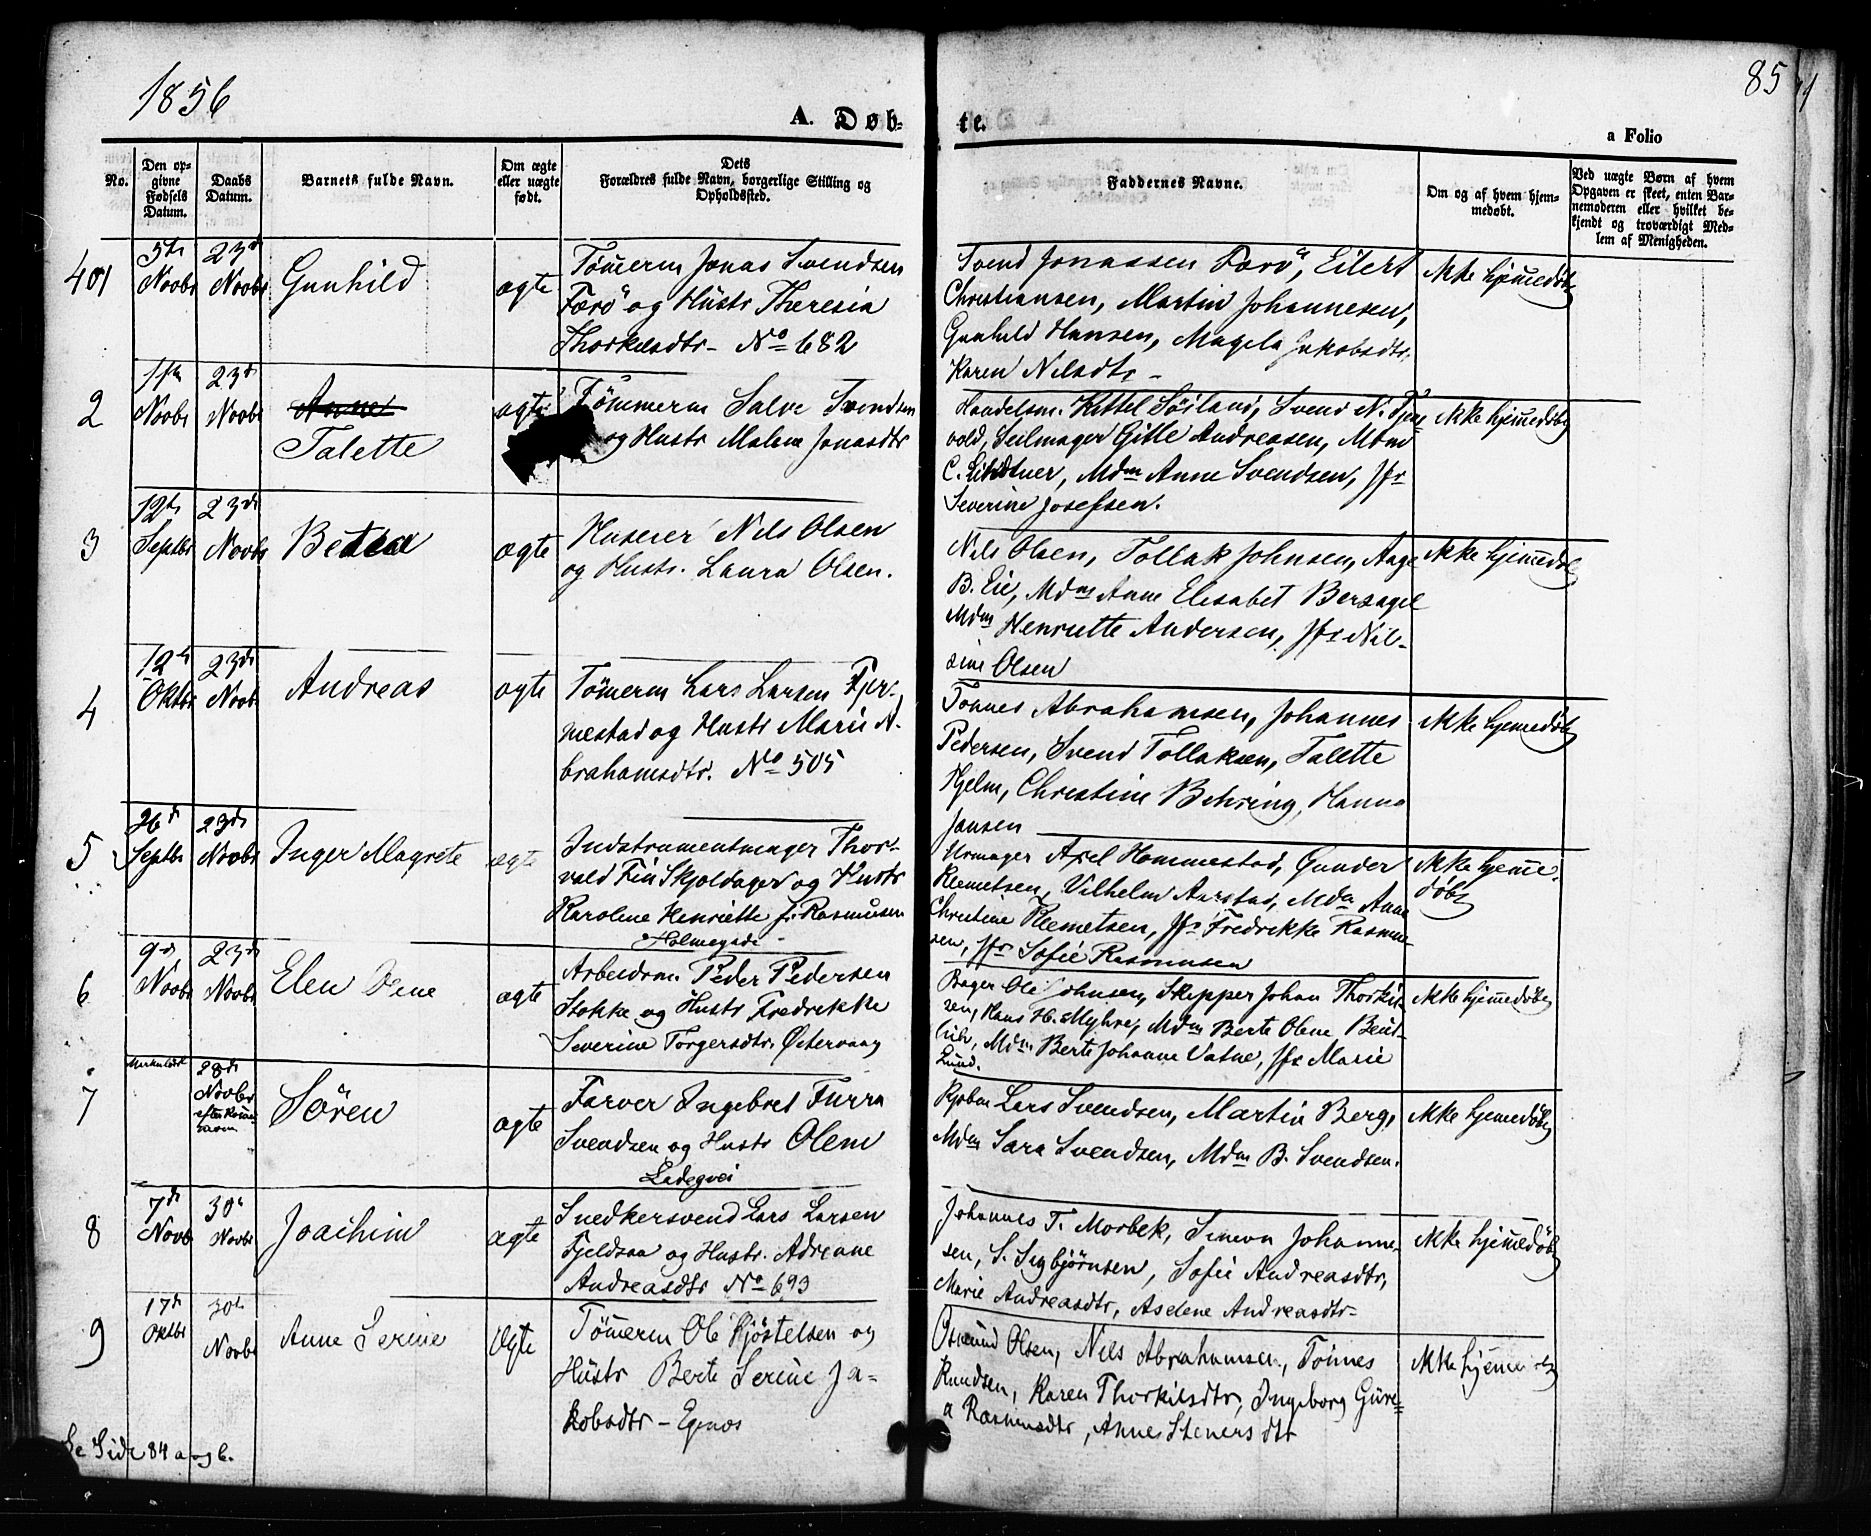 1856
85
A. Døb-
te.
a Folio
No.
Den op-
givne
Fødsels
Datum.
Daabs
Datum.
Barnets fulde Navn.
Om ægte
eller uægte
født.
Dets
Forældres fulde Navn, borgerlige Stilling og
Opholdssted.
Faddernes Navne.
Om og af hvem hjem-
medøbt.
Ved uægte Børn af hvem
Opgaven er skeet, enten Bar-
nemoderen eller hvilket be-
kjendt og troværdigt Med-
lem af Menigheden.
401
5te
Novbr
23d
Novbr
Gunhild
ægte
Tømerm Jonas Svendsen
Færø og Hustr Theresia
Thorkildsdtr - No 682
Svend Jonassen Færø, Eilert
Christiansen, Martin Johannesen,
Gunhild Hansen, Magela Jakobsdtr,
Karen Nilsdtr -
Ikke hjemedøbt
2
11te
Novbr
23d
Novbr
Anne
Talette
ægte
Tømmerm Salve Svendsen
og Hustr Malene Jonasdtr
Handelsm. Kittel Söiland, Svend N.
vold, Seilmager Gitle Andreasen, Mdm
C. Lindtner, Mdm Anne Svendsen, Jfr
Severine Josefsen.
Ikke hjemedøbt
3
12te
Septbr
23d
Novbr
Betzea
ægte
Huseier Nils Olsen
og Hustr. Laura Olsen.
Nils Olsen, Tollak Johnsen, Aage
B. Eie, Mdm Anne Elisabet Bersagel
Mdm Henriette Andersen, Jfr Nil-
sine Olsen
Ikke hjemedøbt
4
12te
Oktbr
23d
Novbr
Andreas
ægte
Tømerm Lars Larsen Tjer-
nestad og Hustr Marie A-
brahamsdtr. No 505
Tönnes Abrahamsen, Johannes
Pedersen, Svend Tollaksen, Talette
Hjelm, Christine Behring, Hanne
Jansen
Ikke hjemedøbt
5
26d
Septbr
23d
Novbr
Inger Magrete
ægte
Indstrumentmager Thor-
vald Fin Skjoldager og Hustr
Karoline Henriette f. Rasmusen
Holmegade -
Urmager Axel Hommestad, Gunder
Klemetsen, Vilhelm Aarstad, Mdm Anne
Christine Klemetsen, Jfr Fredrikke Rasmu-
sen, Jfr Sofie Rasmusen
Ikke hjeme-
døbt
6
9d
Novbr
23d
Novbr
Elen Oline
ægte
Arbeidsm. Peder Pedersen
Stokke og Hustr Fredrikke
Severine Torgersdtr. Østervaag
Bager Ole Johnsen, Skipper Johan Thorkil-
sen, Hans H. Myhre, Mdm Berte Oline Bent-
lien, Mdm. Berte Johanne Vatne, Jfr Marie
Lund.
Ikke hjemedøbt
7
28d
Novbr
Sören
ægte
Farver Ingebret Furra
Svendsen og Hustr Olene
Ladegvei
Kjøbm Lars Svendsen, Martin Berg,
Mdm Sara Svendsen, Mdm B. Svendsen.
Ikke hjemedøbt
8
7d
Novb
30d
Novbr
Joachim
ægte
Snedkersvend Lars Larsen
Fjeldsaa og Hustr. Adriane
Andreasdtr No 693
Johannes T. Morbek, Simon Johanne-
sen, S. Sigbjørnsen, Sofie Andreasdtr,
Marie Andreasdtr, Aselene Andreasdtr-
Ikke hjemedøbt
9
17d
Oktbr
30te
Novbr
Anne Serine
Ægte
Tømerm Ole Kjøstelsen og
Hustr Berte Serine Ja-
kobsdtr - Egenæs
Osmund Olsen, Nils Abrahamsen, Tönnes
Knudsen, Karen Thorkilsdtr, Ingeborg Gure-
a Rasmusdtr, Anne Steners dtr
Ikke hjeme
Se Side 84 a og b.